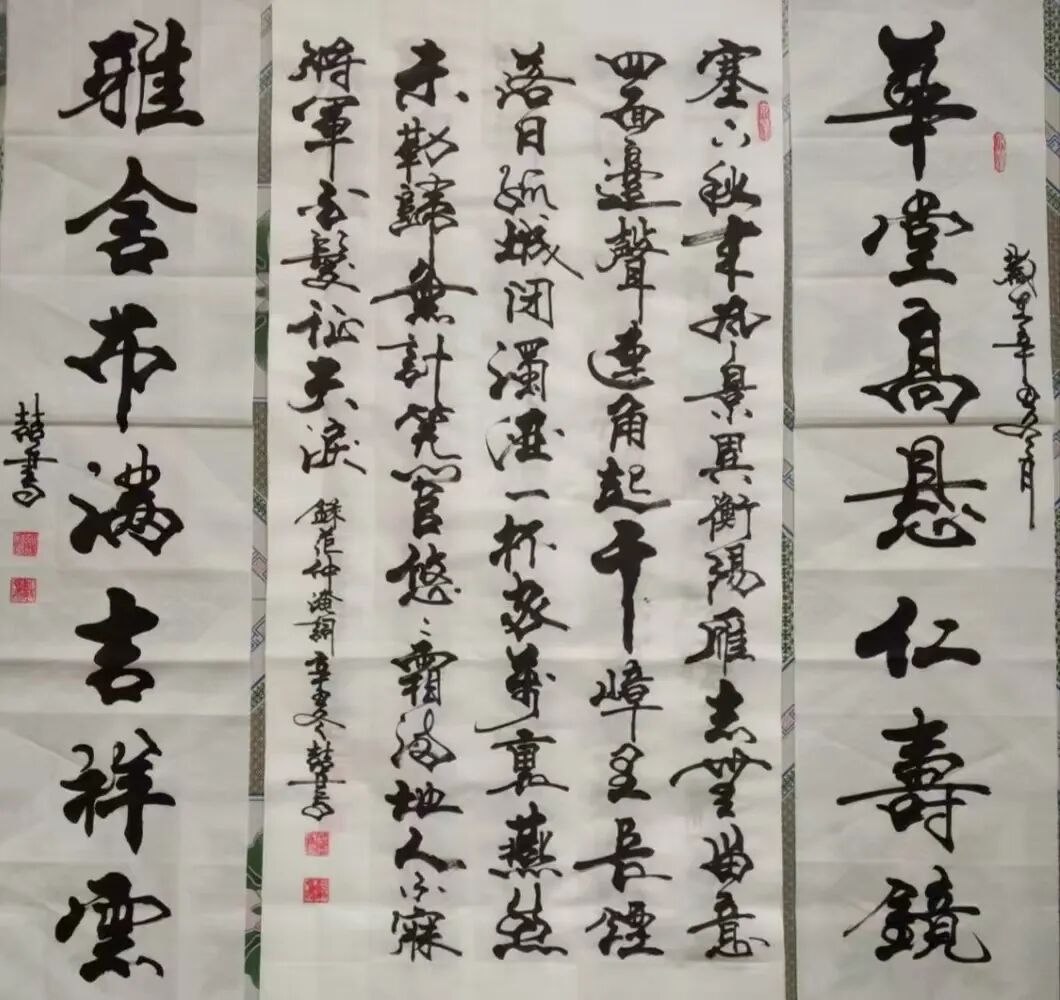 華堂高悬仁壽鏡
歲在辛丑冬月
塞下秋来风景異衡陽雁去無留意
四面邊聲連角起千嶂里長煙
落日孤城闭濁酒一杯家萬裏燕然
未勒歸無計羌管悠々霜满地人不寐
将軍白髮征夫淚
録范仲淹詞辛丑冬喆書
雅舍布满吉祥雲
喆書